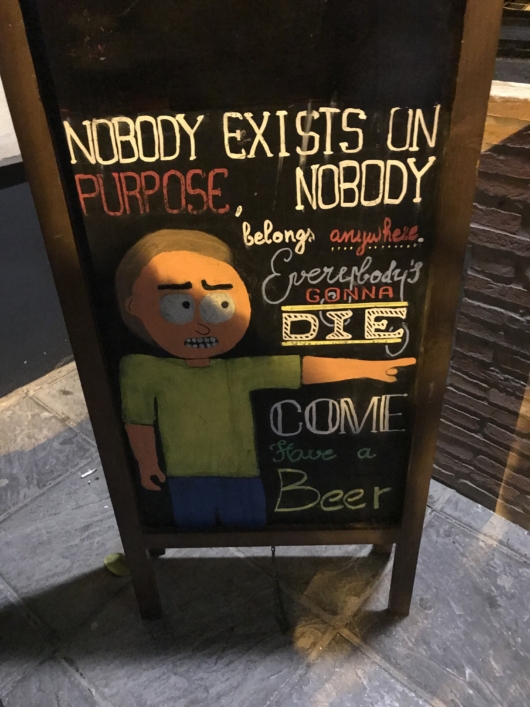 NOBODY EXISTS ON
PURPOSE, NOBODY
belongs anywhere.
Everybody's
GONNA
DIE
COME
Have a
Beer